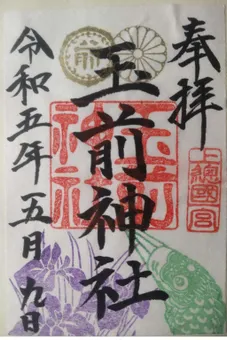 奉拝
上總國一宮
玉前神社
玉前神社
令和五年五月九日
前